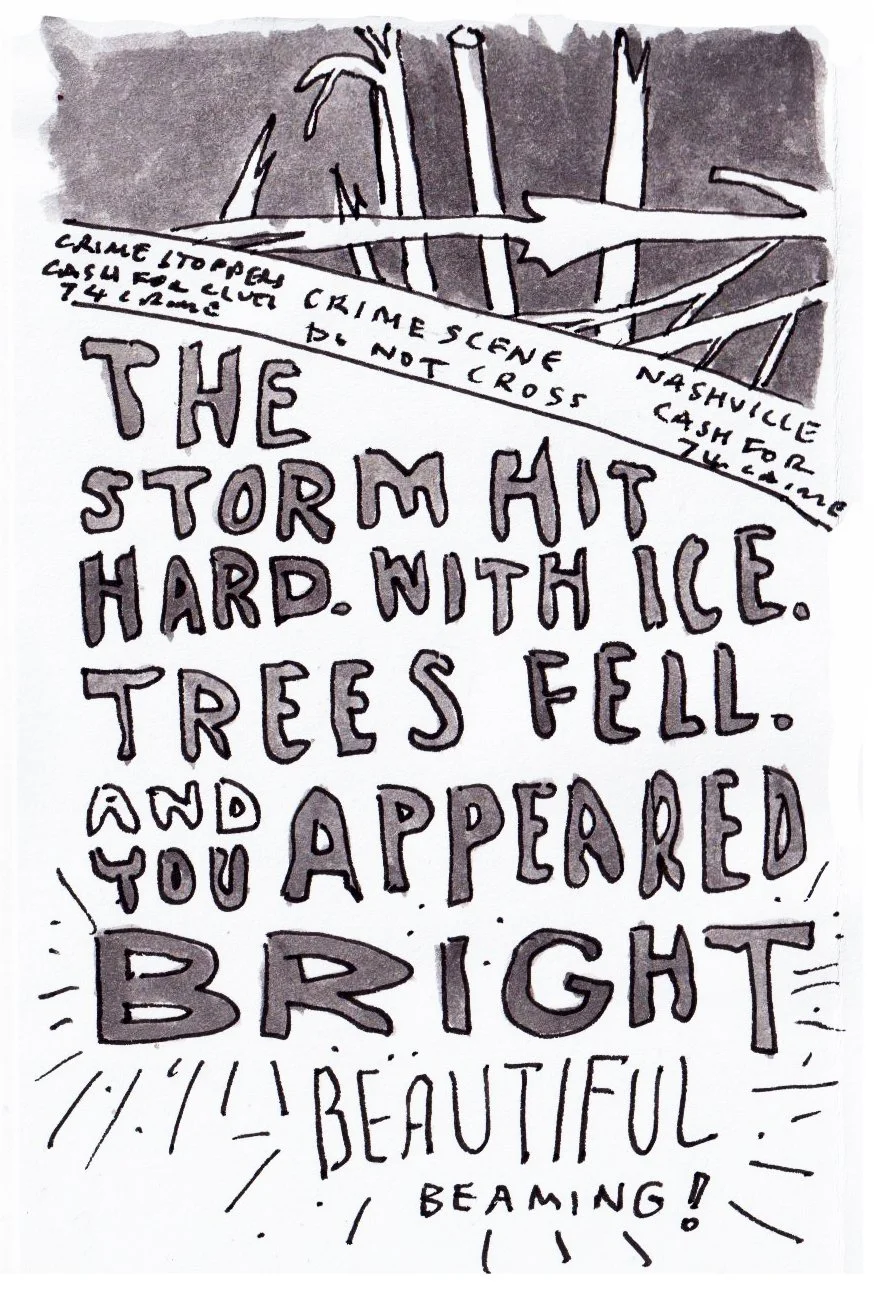 CRIME STOPPERS
CASH FOR CLUES
74 CRIME
CRIME SCENE
DO NOT CROSS
NASHVILLE
CASH FOR
74 CRIME
THE
STORM HIT
HARD. WITH ICE.
TREES FELL.
AND
YOU APPEARED
BRIGHT
BEAUTIFUL
BEAMING!